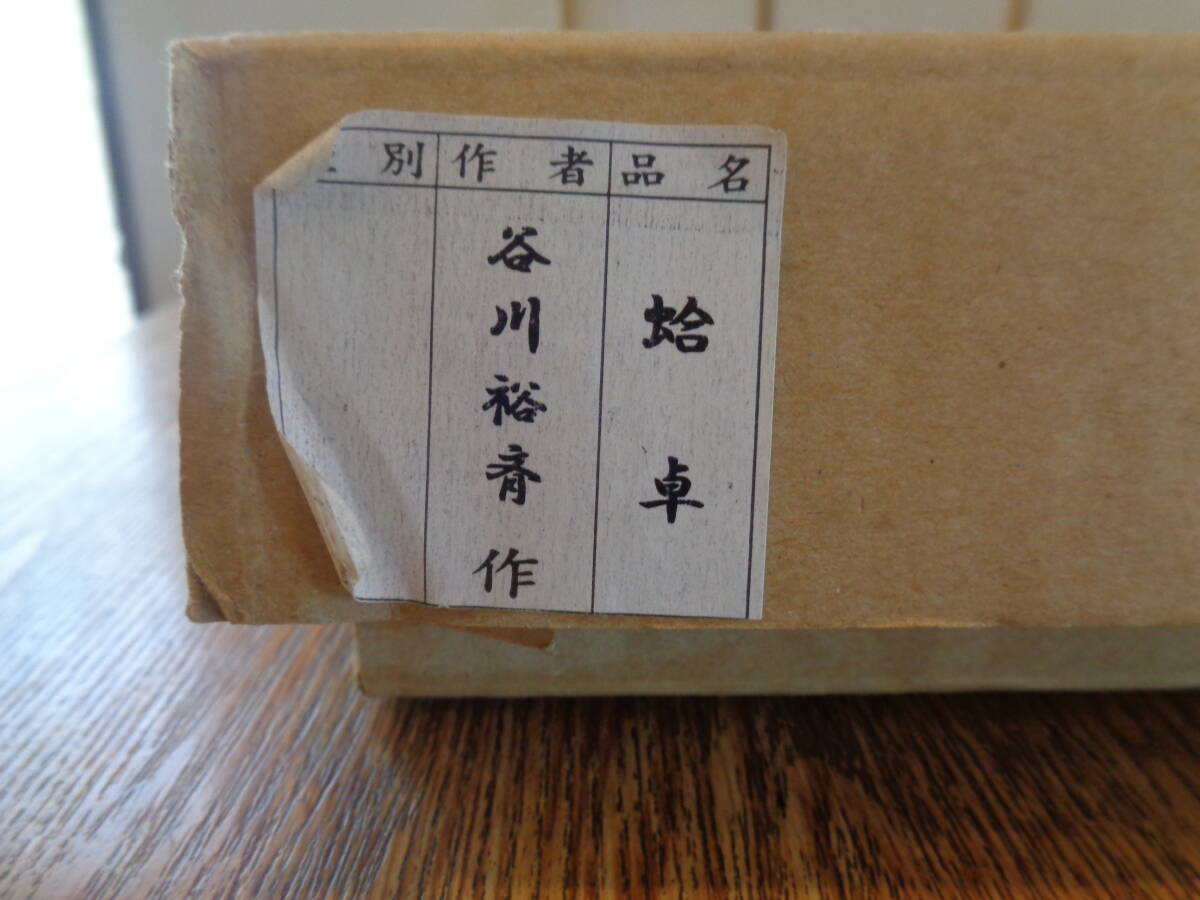 品名
蛤卓
作者
谷川裕斉作
別